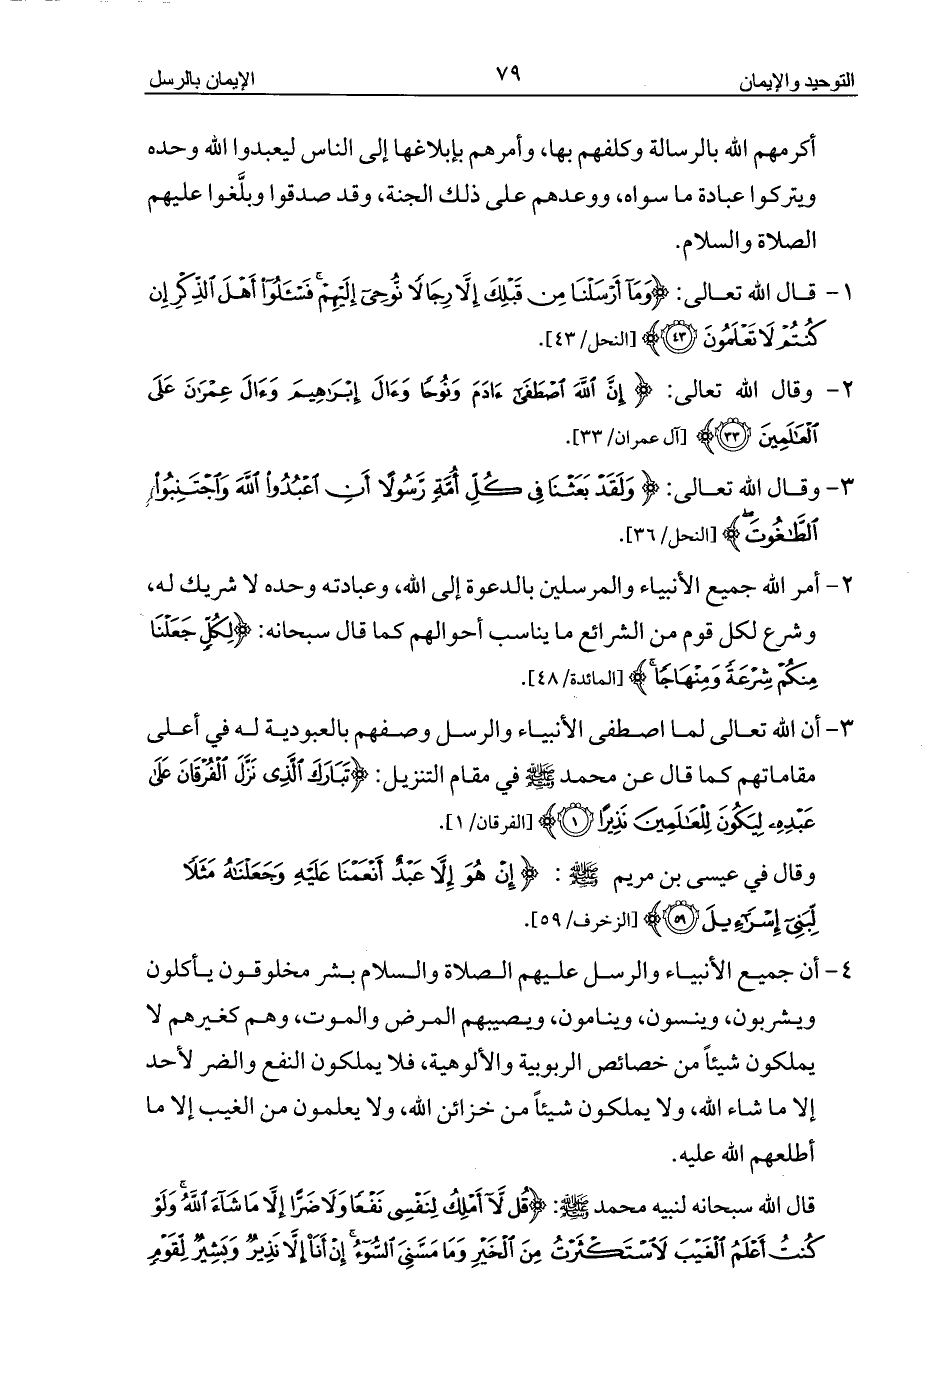 التوحيد والإيمان ٧٩ الإيمان بالرسل
أكرمهم الله بالرسالة وكلفهم بها، وأمرهم بإبلاغها إلى الناس ليعبدوا الله وحده
ويتركوا عبادة ما سواه، ووعدهم على ذلك الجنة، وقد صدقوا وبلَّغوا عليهم
الصلاة والسلام.
١- قال الله تعالى: ﴿وَمَآ أَرْسَلْنَا مِن قَبْلِكَ إِلَّا رِجَالًا نُّوحِىٓ إِلَيْهِمْ ۚ فَسْـَٔلُوٓا۟ أَهْلَ ٱلذِّكْرِ إِن
كُنتُمْ لَا تَعْلَمُونَ ۝٤٣﴾ [النحل/ ٤٣].
٢- وقال الله تعالى: ﴿ إِنَّ ٱللَّهَ ٱصْطَفَىٰٓ ءَادَمَ وَنُوحًا وَءَالَ إِبْرَٰهِيمَ وَءَالَ عِمْرَٰنَ عَلَى
ٱلْعَٰلَمِينَ ۝٣٣﴾ [آل عمران/ ٣٣].
٣- وقال الله تعالى: ﴿ وَلَقَدْ بَعَثْنَا فِى كُلِّ أُمَّةٍ رَّسُولًا أَنِ ٱعْبُدُوا۟ ٱللَّهَ وَٱجْتَنِبُوا۟
ٱلطَّٰغُوتَ ۖ ﴾ [النحل/ ٣٦].
٢- أمر الله جميع الأنبياء والمرسلين بالدعوة إلى الله، وعبادته وحده لا شريك له،
وشرع لكل قوم من الشرائع ما يناسب أحوالهم كما قال سبحانه: ﴿لِكُلٍّ جَعَلْنَا
مِنكُمْ شِرْعَةً وَمِنْهَاجًا ۚ ﴾ [المائدة/ ٤٨].
٣- أن الله تعالى لما اصطفى الأنبياء والرسل وصفهم بالعبودية له في أعلى
مقاماتهم كما قال عن محمد ﷺ في مقام التنزيل: ﴿تَبَارَكَ ٱلَّذِى نَزَّلَ ٱلْفُرْقَانَ عَلَىٰ
عَبْدِهِۦ لِيَكُونَ لِلْعَٰلَمِينَ نَذِيرًا ۝١﴾ [الفرقان/ ١].
وقال في عيسى بن مريم ﷺ : ﴿ إِنْ هُوَ إِلَّا عَبْدٌ أَنْعَمْنَا عَلَيْهِ وَجَعَلْنَٰهُ مَثَلًا
لِّبَنِىٓ إِسْرَٰٓءِيلَ ۝٥٩﴾ [الزخرف/ ٥٩].
٤- أن جميع الأنبياء والرسل عليهم الصلاة والسلام بشر مخلوقون يأكلون
ويشربون، وينسون، وينامون، ويصيبهم المرض والموت، وهم كغيرهم لا
يملكون شيئاً من خصائص الربوبية والألوهية، فلا يملكون النفع والضر لأحد
إلا ما شاء الله، ولا يملكون شيئاً من خزائن الله، ولا يعلمون من الغيب إلا ما
أطلعهم الله عليه.
قال الله سبحانه لنبيه محمد ﷺ: ﴿قُل لَّآ أَمْلِكُ لِنَفْسِى نَفْعًا وَلَا ضَرًّا إِلَّا مَا شَآءَ ٱللَّهُ ۚ وَلَوْ
كُنتُ أَعْلَمُ ٱلْغَيْبَ لَٱسْتَكْثَرْتُ مِنَ ٱلْخَيْرِ وَمَا مَسَّنِىَ ٱلسُّوٓءُ ۚ إِنْ أَنَا۠ إِلَّا نَذِيرٌ وَبَشِيرٌ لِّقَوْمٍ